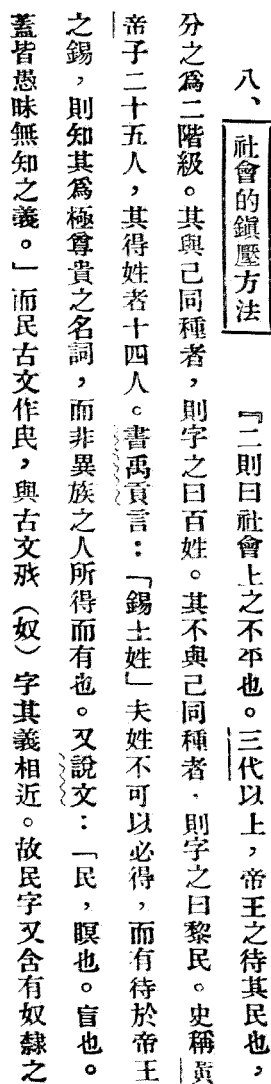 八、社會的鎭壓方法　『二則曰社會上之不平也。三代以上，帝王之待其民也，
分之爲二階級。其與己同種者，則字之曰百姓。其不與己同種者，則字之曰黎民。史稱黃
帝子二十五人，其得姓者十四人。書禹貢言：「錫土姓」夫姓不可以必得，而有待於帝王
之錫，則知其爲極尊貴之名詞，而非異族之人所得而有也。又說文：「民，瞑也。盲也。
蓋皆愚昧無知之義。」而民古文作㞋，與古文㚢（奴）字其義相近。故民字又含有奴隸之